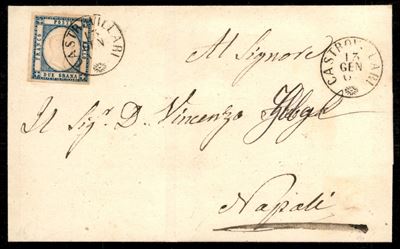 FRANCO
POSTE
BOLLO
DUE GRANA
CASTROVILLARI
CASTROVILLARI
13
GEN
Al Signore
Il Sigr. D. Vincenzo
Napoli